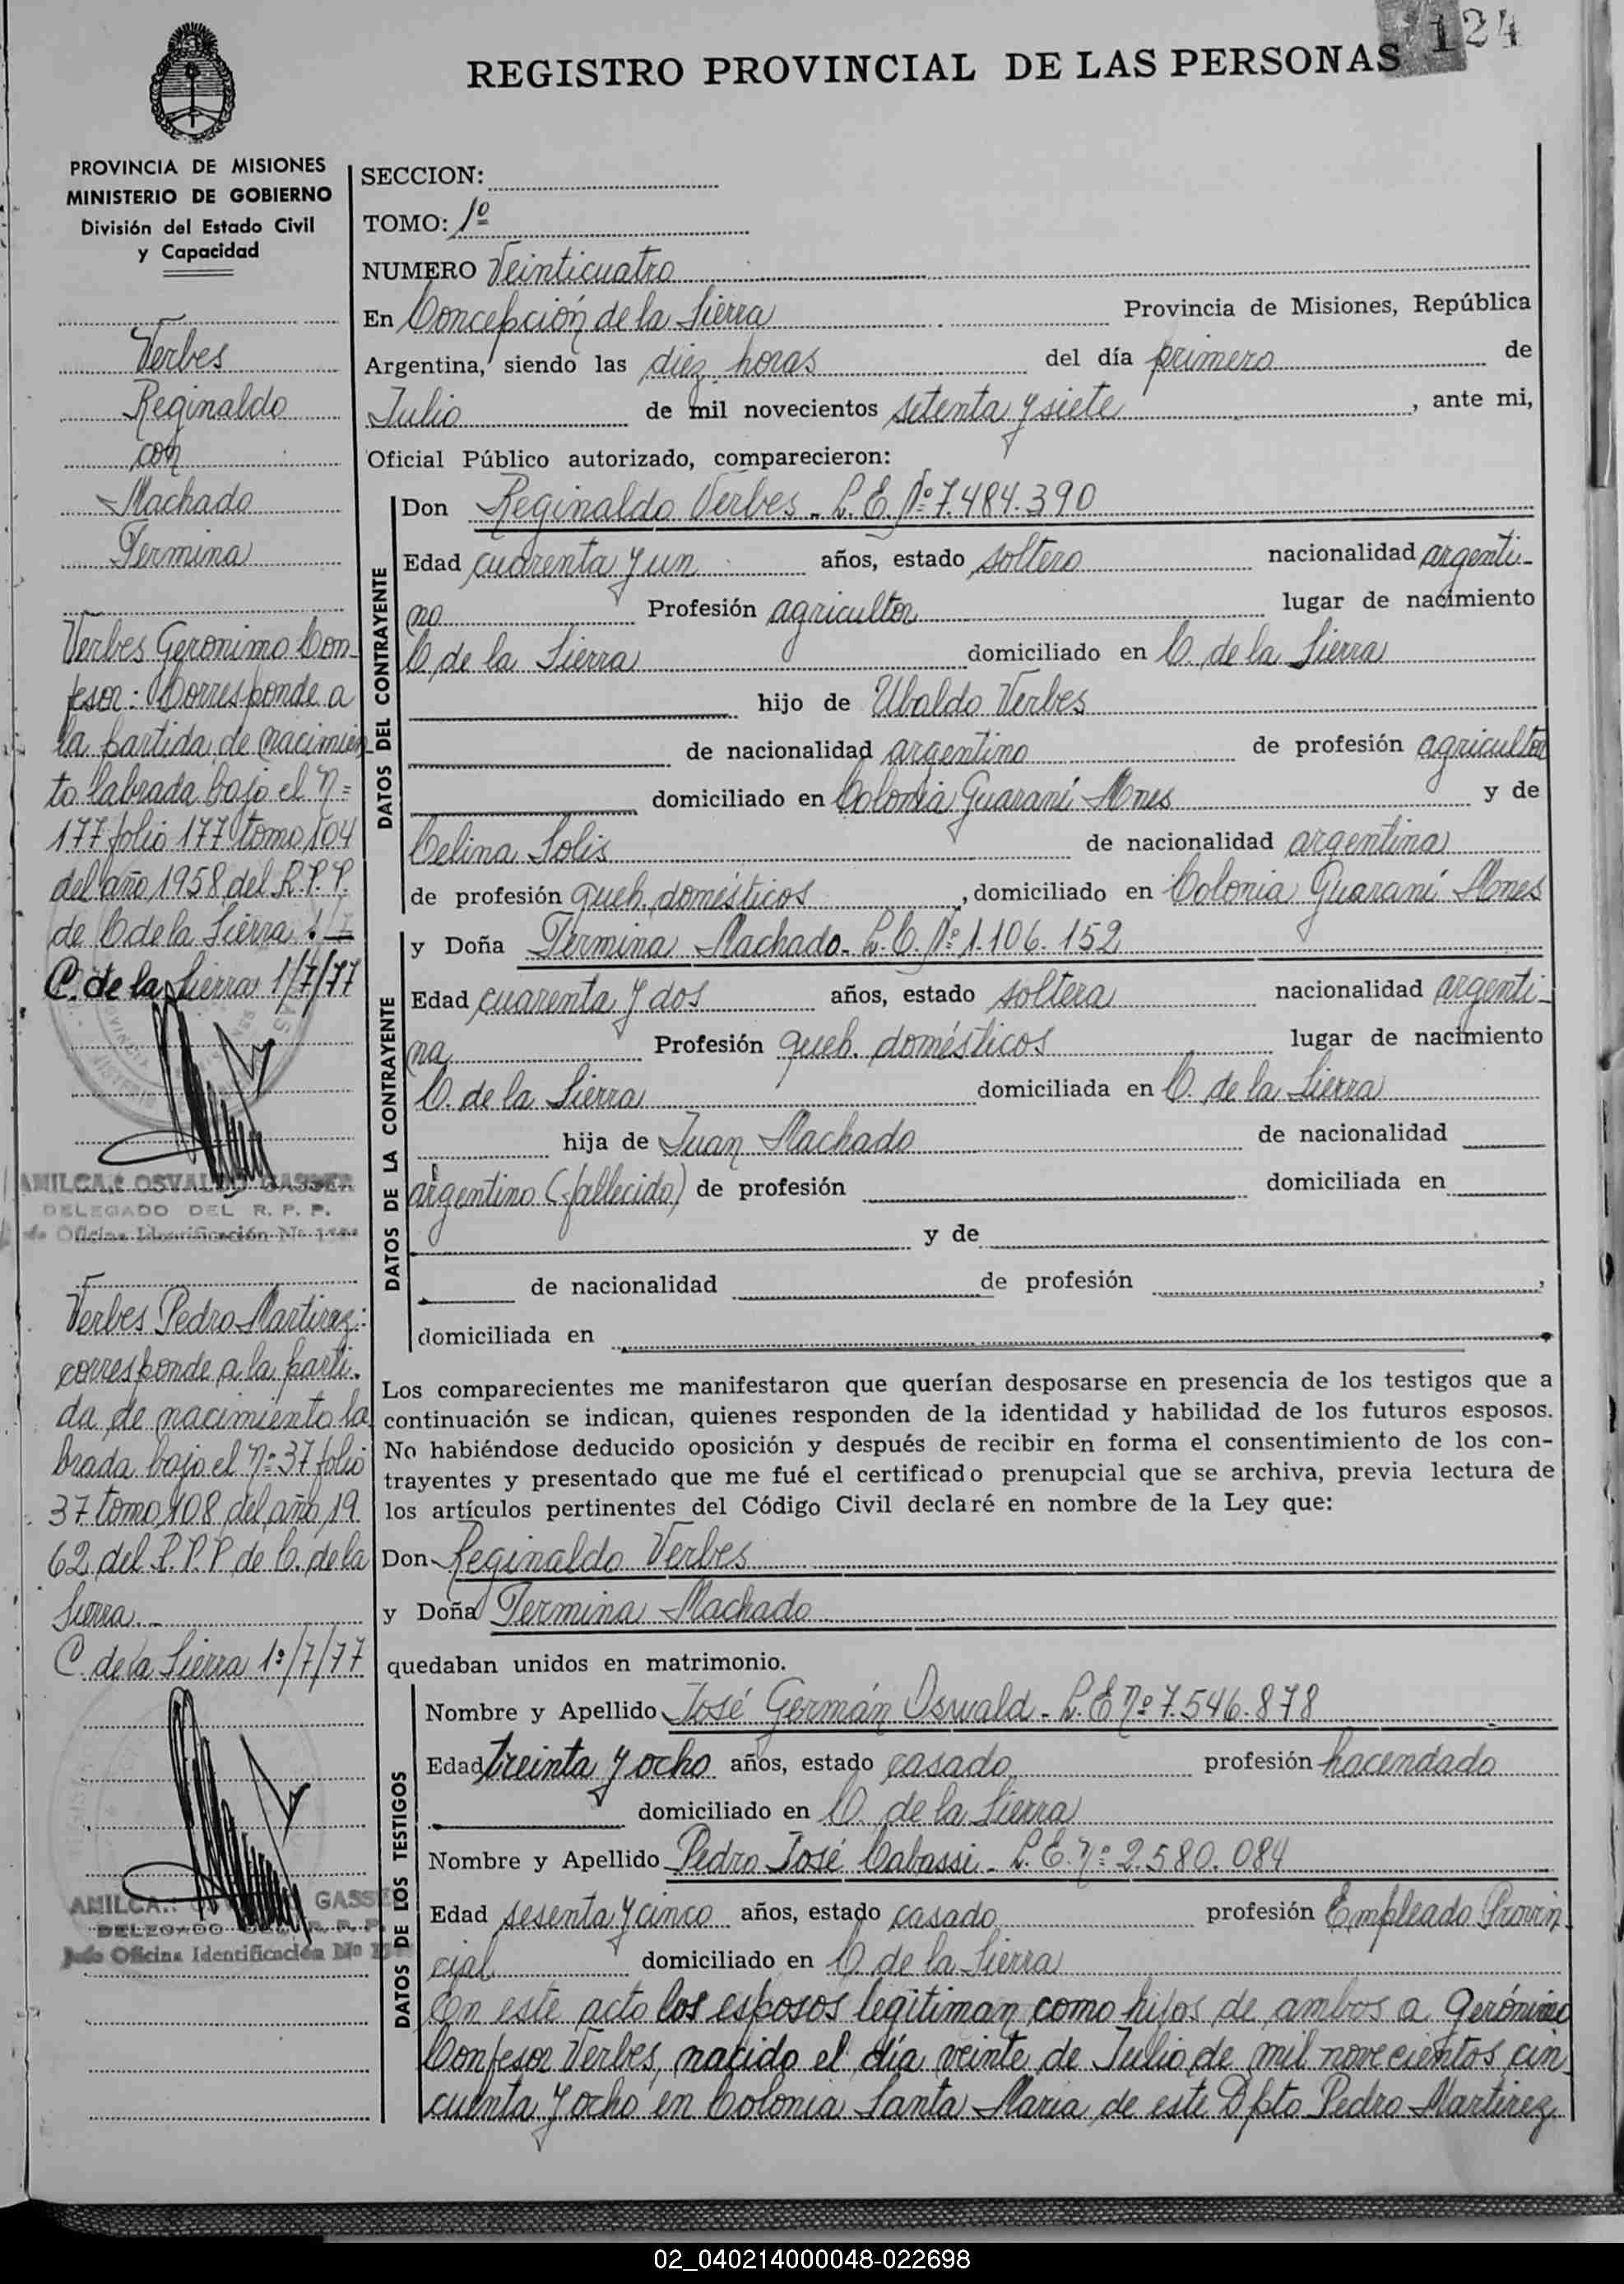 124
REGISTRO PROVINCIAL DE LAS PERSONAS
PROVINCIA DE MISIONES
MINISTERIO DE GOBIERNO
División del Estado Civil
y Capacidad
Verbes
Reginaldo
con
Machado
Fermina
Verbes Geronimo Con-
fesor: Corresponde a
la partida de nacimien-
to labrada bajo el Nº
177 folio 177 tomo 104
del año 1958 del R.P.P.
de C de la Sierra 1/7
C. de la Sierra 1/7/77
DELEGADO DEL R. P. P.
Verbes Pedro Martirez:
corresponde a la parti-
da de nacimiento la
brada bajo el Nº 37 folio
37 tomo 108 del año 19
62 del R.P.P de C. de la
Sierra.-
C. de la Sierra 1º/7/77
GASSE
DELEGADO DEL R. P. P.
Jefe Oficina Identificación Nº
SECCION:
TOMO: 1º
NUMERO Veinticuatro
En Concepción de la Sierra Provincia de Misiones, República
Argentina, siendo las diez horas del día primero de
Julio de mil novecientos setenta y siete, ante mi,
Oficial Público autorizado, comparecieron:
DATOS DEL CONTRAYENTE
Don Reginaldo Verbes - L.E. Nº 7.484.390
Edad cuarenta y un años, estado soltero nacionalidad argenti-
no Profesión agricultor lugar de nacimiento
C. de la Sierra domiciliado en C. de la Sierra
hijo de Ubaldo Verbes
de nacionalidad argentino de profesión agricultor
domiciliado en Colonia Guaraní Mnes y de
Celina Solis de nacionalidad argentina
de profesión queh. domésticos, domiciliado en Colonia Guaraní Mnes
DATOS DE LA CONTRAYENTE
y Doña Fermina Machado - L.C. Nº 1.106.152
Edad cuarenta y dos años, estado soltera nacionalidad argenti-
na Profesión queh. domésticos lugar de nacimiento
C. de la Sierra domiciliada en C. de la Sierra
hija de Juan Machado de nacionalidad
argentino (fallecido) de profesión domiciliada en
y de
de nacionalidad de profesión ,
domiciliada en
Los comparecientes me manifestaron que querían desposarse en presencia de los testigos que a
continuación se indican, quienes responden de la identidad y habilidad de los futuros esposos.
No habiéndose deducido oposición y después de recibir en forma el consentimiento de los con-
trayentes y presentado que me fué el certificado prenupcial que se archiva, previa lectura de
los artículos pertinentes del Código Civil declaré en nombre de la Ley que:
Don Reginaldo Verbes
y Doña Fermina Machado
quedaban unidos en matrimonio.
DATOS DE LOS TESTIGOS
Nombre y Apellido José Germán Oswald - L.E Nº 7.546.878
Edad treinta y ocho años, estado casado profesión hacendado
domiciliado en C. de la Sierra
Nombre y Apellido Pedro José Cabassi - L.E. Nº 2.580.084
Edad sesenta y cinco años, estado casado profesión Empleado Provin
cial domiciliado en C. de la Sierra
En este acto los esposos legitiman como hijos de ambos a Gerónimo
Confesor Verbes, nacido el día veinte de Julio de mil novecientos cin
cuenta y ocho en Colonia Santa María de este Dpto Pedro Martirez
02_040214000048-022698